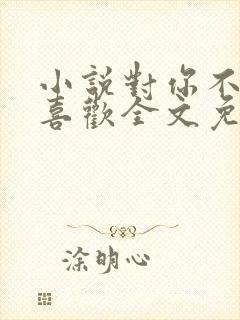 小說對你不
喜歡全文免
涂明心